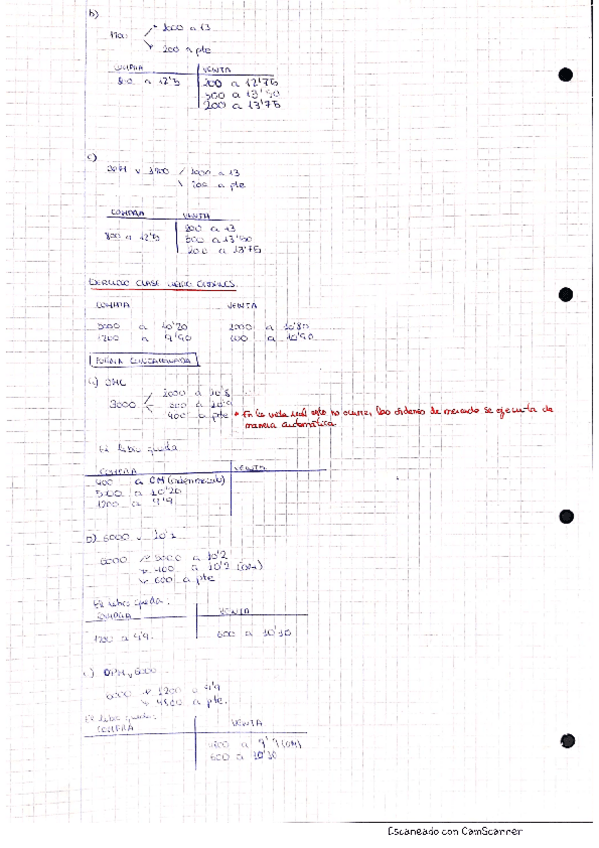 b)
1200 1000 a 13
200 a pte
COMPRA VENTA
800 a 12'5 200 a 12'75
500 a 13'50
200 a 13'75
c)
OPM v 1200 1000 a 13
200 a pte
COMPRA VENTA
800 a 12'5 200 a 13
500 a 13'50
200 a 13'75
EJERCICIO CLASE
COMPRA VENTA
5000 a 10'20 2000 a 10'80
1200 a 9'90 600 a 10'90
a) OMC
3000 2000 a 10'8
600 a 10'9
400 a pte * En la vida real esto no ocurre, las órdenes de mercado se ejecuta de
manera automática.
El libro queda
COMPRA VENTA
400 a OM
5000 a 10'20
1200 a 9'9
b) 6000 v 10'2
6000 5000 a 10'2
400 a 10'2 (OM)
600 a pte
El libro queda:
COMPRA VENTA
1200 a 9'9. 600 a 10'10
c) OPM v 6000
6000 1200 a 9'9
4800 a pte.
El libro queda:
COMPRA VENTA
4800 a 9'9 (OM)
600 a 10'10
Escaneado con CamScanner